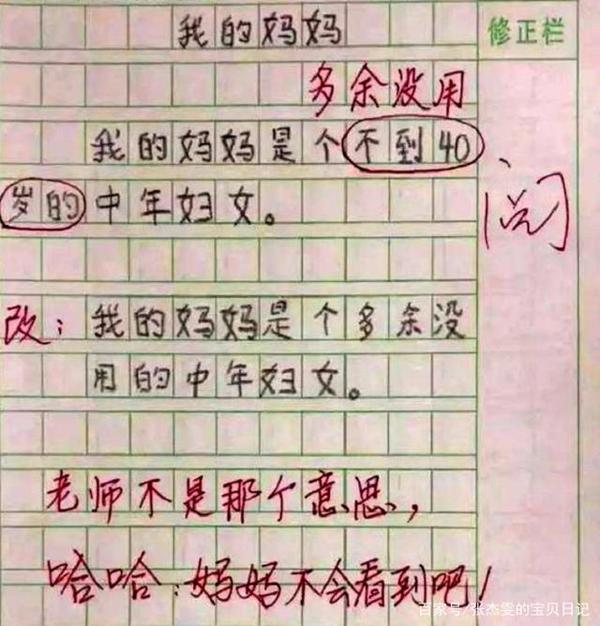 我的妈妈
修正栏
多余没用
我的妈妈是个不到40
岁的中年妇女。
阅
改：我的妈妈是个多余没
用的中年妇女。
老师不是那个意思，
哈哈：妈妈不会看到吧！
百家号/张杰雯的宝贝日记